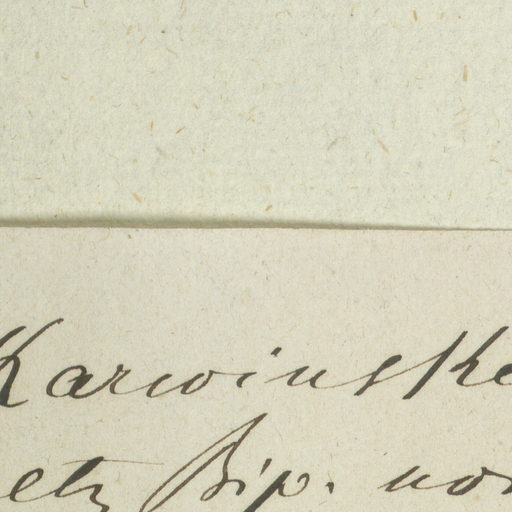 Karwinske
etz Bip. non